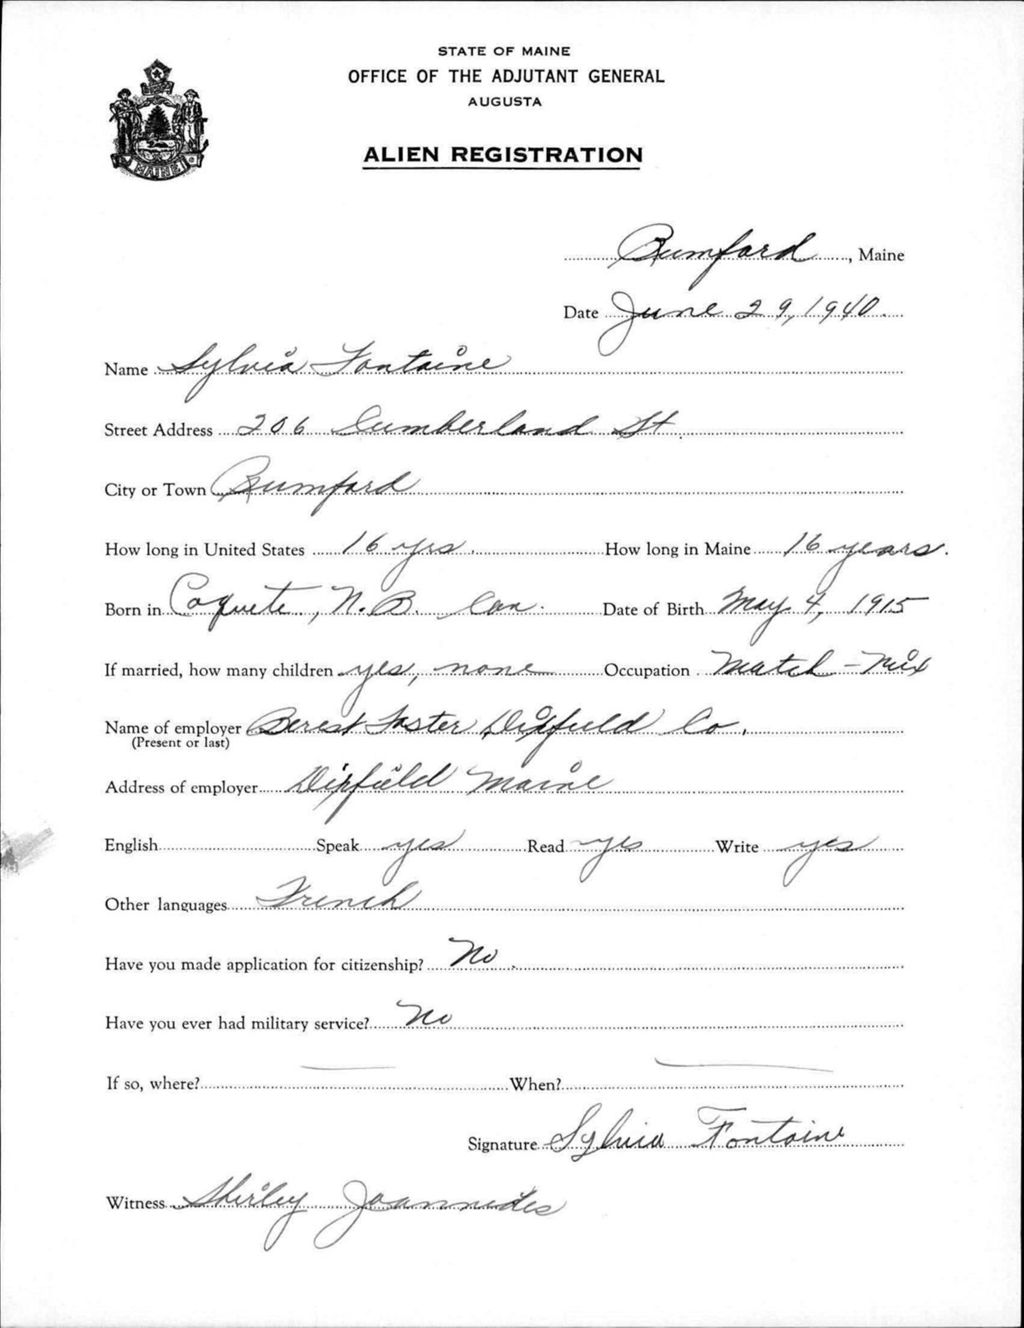 STATE OF MAINE
OFFICE OF THE ADJUTANT GENERAL
AUGUSTA
ALIEN REGISTRATION
MAINE
Rumford, Maine
Date June 29, 1940
Name Sylvia Fontaine
Street Address 206 Cumberland St.
City or Town Rumford
How long in United States 16 yrs. How long in Maine 16 years.
Born in Coquete, N.B. Can. Date of Birth May 4, 1915
If married, how many children yes, none Occupation Match-Mix
Name of employer Berest Foster Dixfield Co.
(Present or last)
Address of employer Dixfield Maine
English Speak yes Read yes Write yes
Other languages French
Have you made application for citizenship? No.
Have you ever had military service? No
If so, where? When?
Signature Sylvia Fontaine
Witness Shirley Joannides